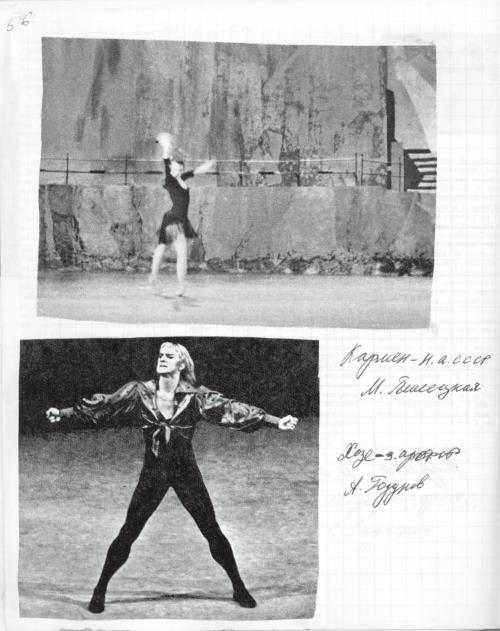 56
Кармен – н.а. СССР
М. Плисецкая
Хозе – з. артист
А. Годунов